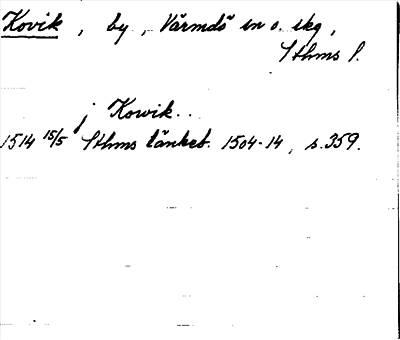 Kovik, by, Värmdö sn o. skg,
Sthms l.
j Kowik..
1514 15/5 Sthms tänkeb. 1504-14, s. 359.